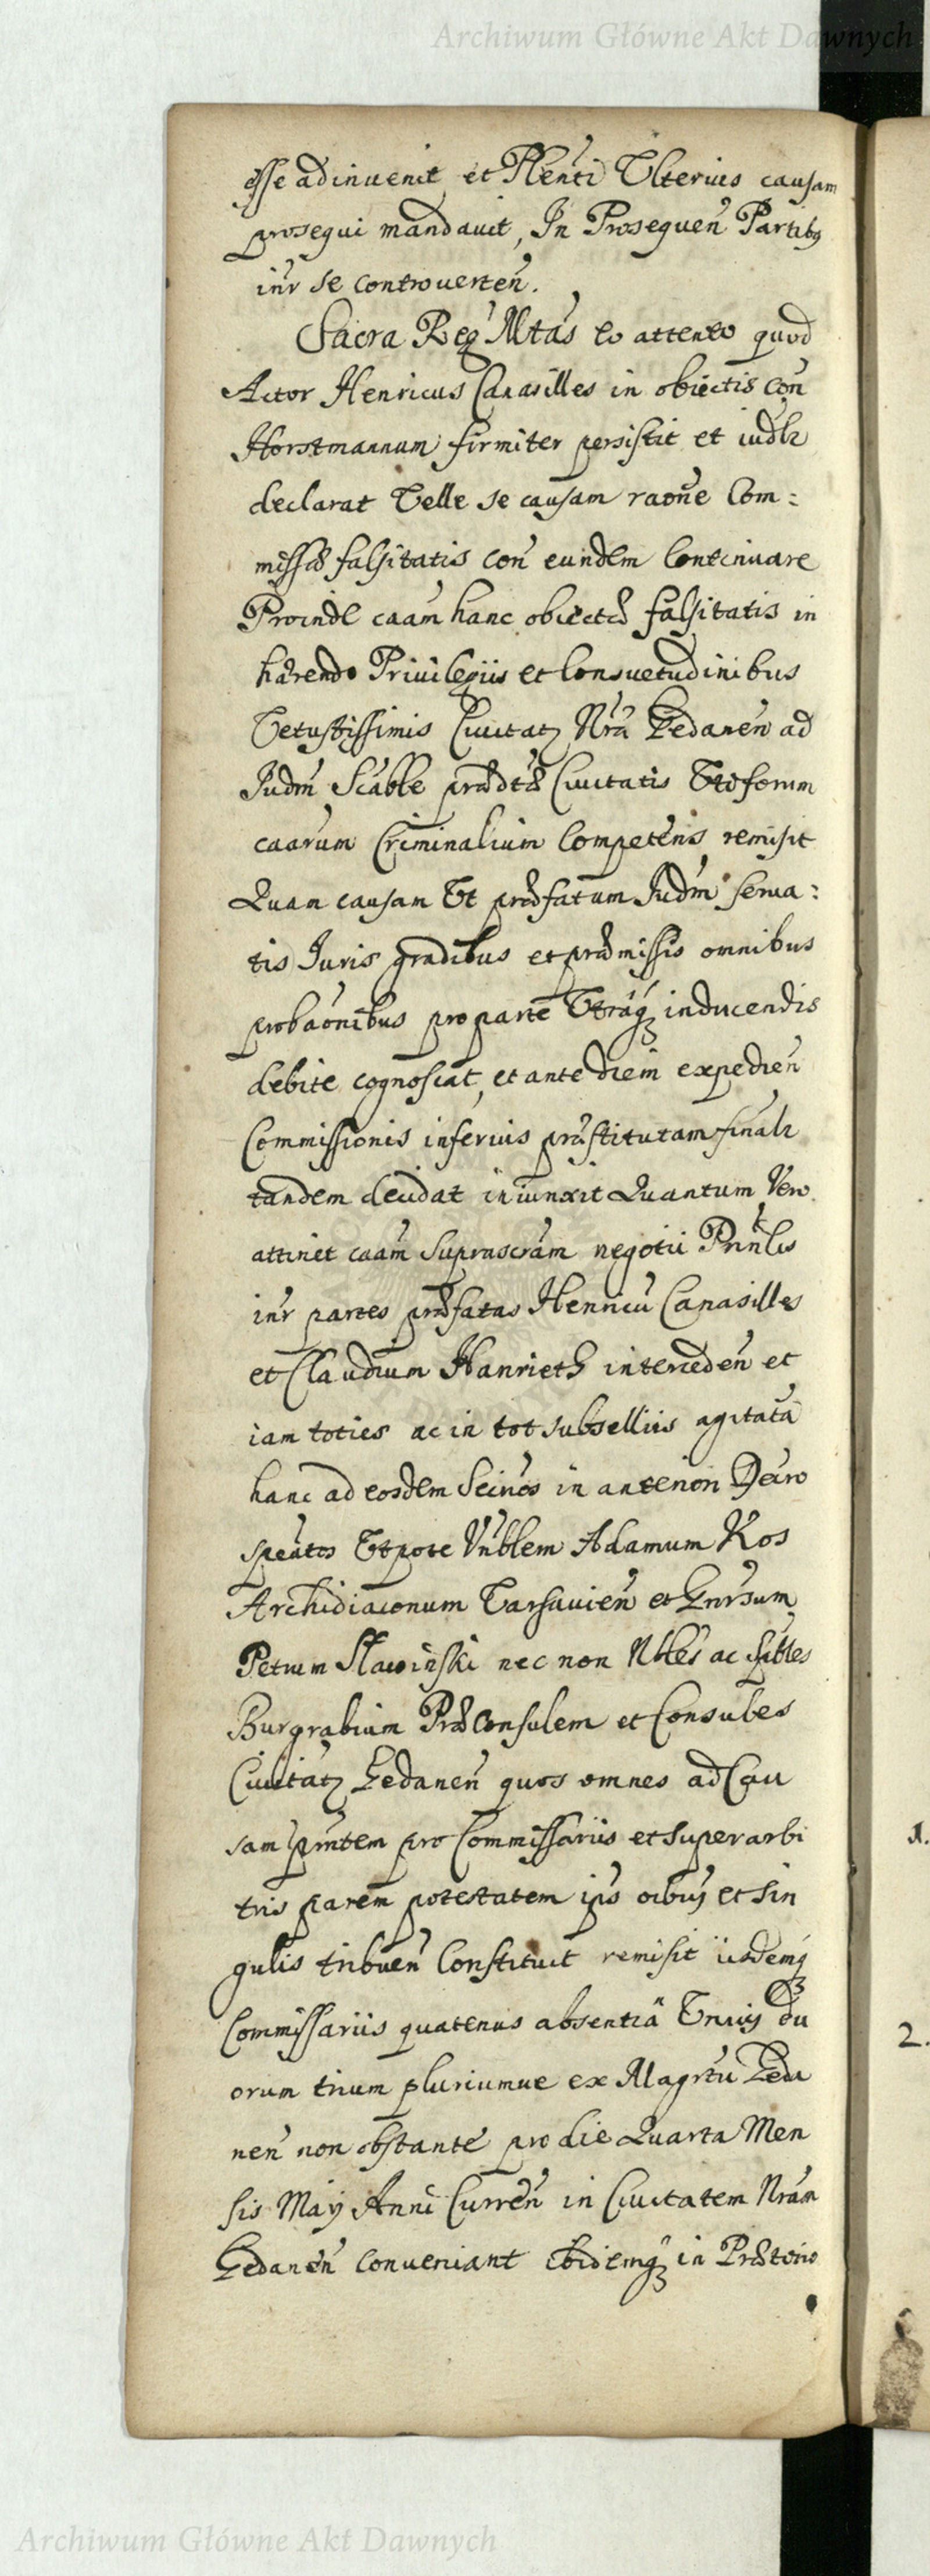 Archiwum Główne Akt Dawnych
esse adinuenit et Plenti Vlterius causam
prosequi mandauit, In Prosequen Partibq
inr se controuerten.
Sacra Reg Mtas eo attento quod
Actor Henricus Canasilles in obiectis Con
Horstmannum firmiter persistit et iudlr
declarat Velle se causam raone Com:
missae falsitatis con eundem Continuare
Proinde caam hanc obiectae falsitatis in
haerendo Priuilegiis et Consuetudinibus
Vetustissimis Ciuitatz Nra Gedanen ad
Judm Scabble praedtae Ciuitatis Vti forum
caarum Criminalium Competens remisit
Quam causam Vt praefatum Judm serua:
tis Juris gradibus et praemissis omnibus
probaonibus pro parte Vtraq inducendis
debite cognoscat, et ante diem expedien
Commissionis inferius praestitutam finalr
tandem decidat iniunxit Quantum Vero
attinet caam suprascram negotii Prinlis
inr partes praefatas Henricu Canasilles
et Claudium Hanrieth interceden et
iam toties ac in tot subselliis agitata
hanc ad eosdem in anteriori Decro
Vtpote Vnblem Adamum Kos
Archidiaconum Varsauien et Gnrsum
Petrum Slawinski nec non Nbles ac Spbles
Burgrabium Praeconsulem et Consules
Ciuitatz Gedanen quos omnes ad Cau
sam prntem pro Commissariis et superarbi
tris parem potestatem ips oibus et sin
gulis tribuen Constituit remisit iisdemq
Commissariis quatenus absentia Vnius du
orum trium pluriumue ex Magrtu Geda
nen non obstante pro die Quarta Men
sis May Anni Curren in Ciuitatem Nram
Gedanen conueniant ibidemq in Praetorio
1.
2.
Archiwum Główne Akt Dawnych